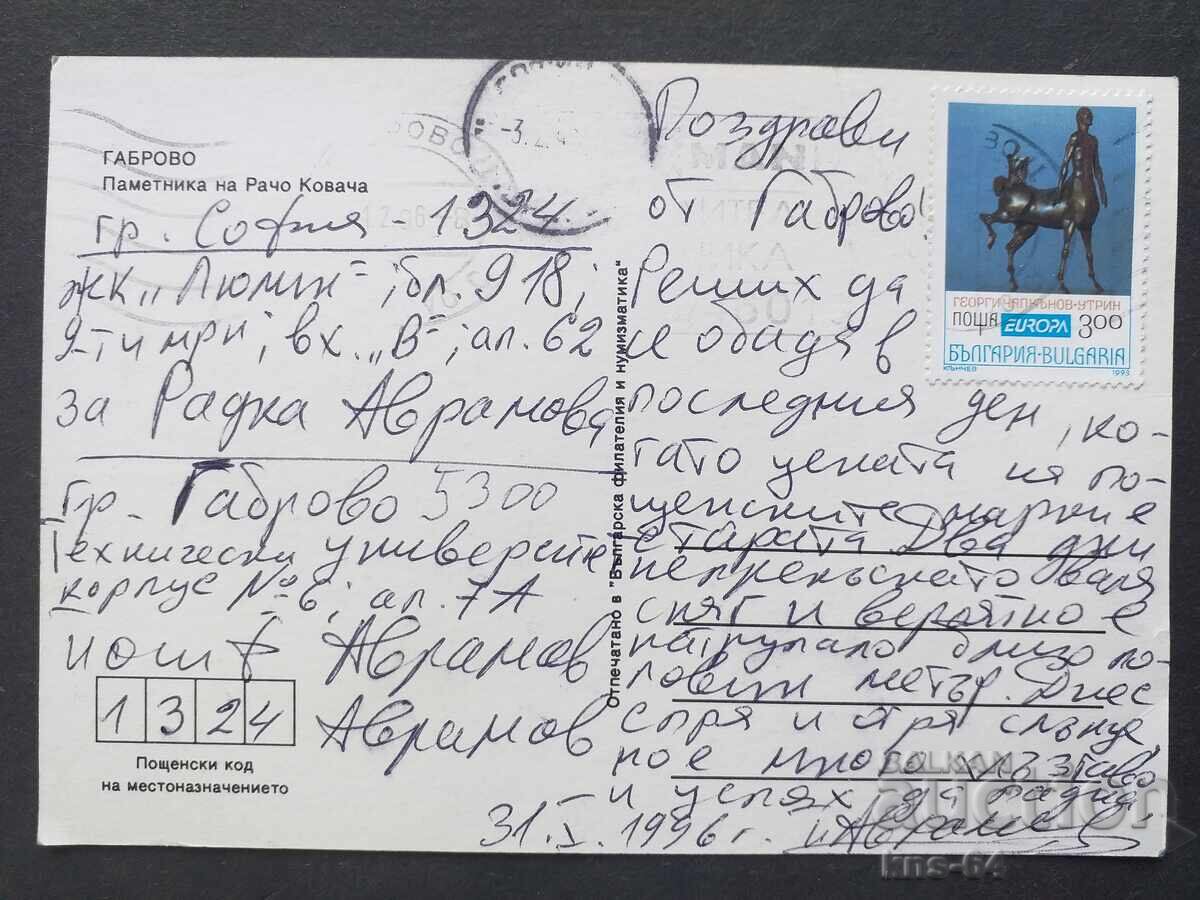 ГАБРОВО
Паметника на Рачо Ковача
гр. София - 1324
жк „Люлин"; бл. 918;
9-ти м-р; вх. „В"; ап. 62
за Радка Аврамова
гр. Габрово 5300
Технически университет
корпус № 6; ап. 7А
Аврамов
Аврамов
1324
Пощенски код
на местоназначението
Отпечатано в "Българска филателия и нумизматика"
Поздрави
от Габрово!
Реших да
се обадя в
последния ден, ко-
гато цената на по-
щенските марки е
старата. Два дни
непрекъснато валя
сняг и вероятно е
натрупало близо по-
ловин метър. Днес
спря и огря слънце,
но е много
и успях да
31.I.1996 г. Аврамов
ГЕОРГИ ЧАПКЪНОВ-УТРИН
ПОЩА EUROPA 3.00
БЪЛГАРИЯ·BULGARIA
КЪНЧЕВ 1993
СОФИЯ
BALKAN
auction
kns-64